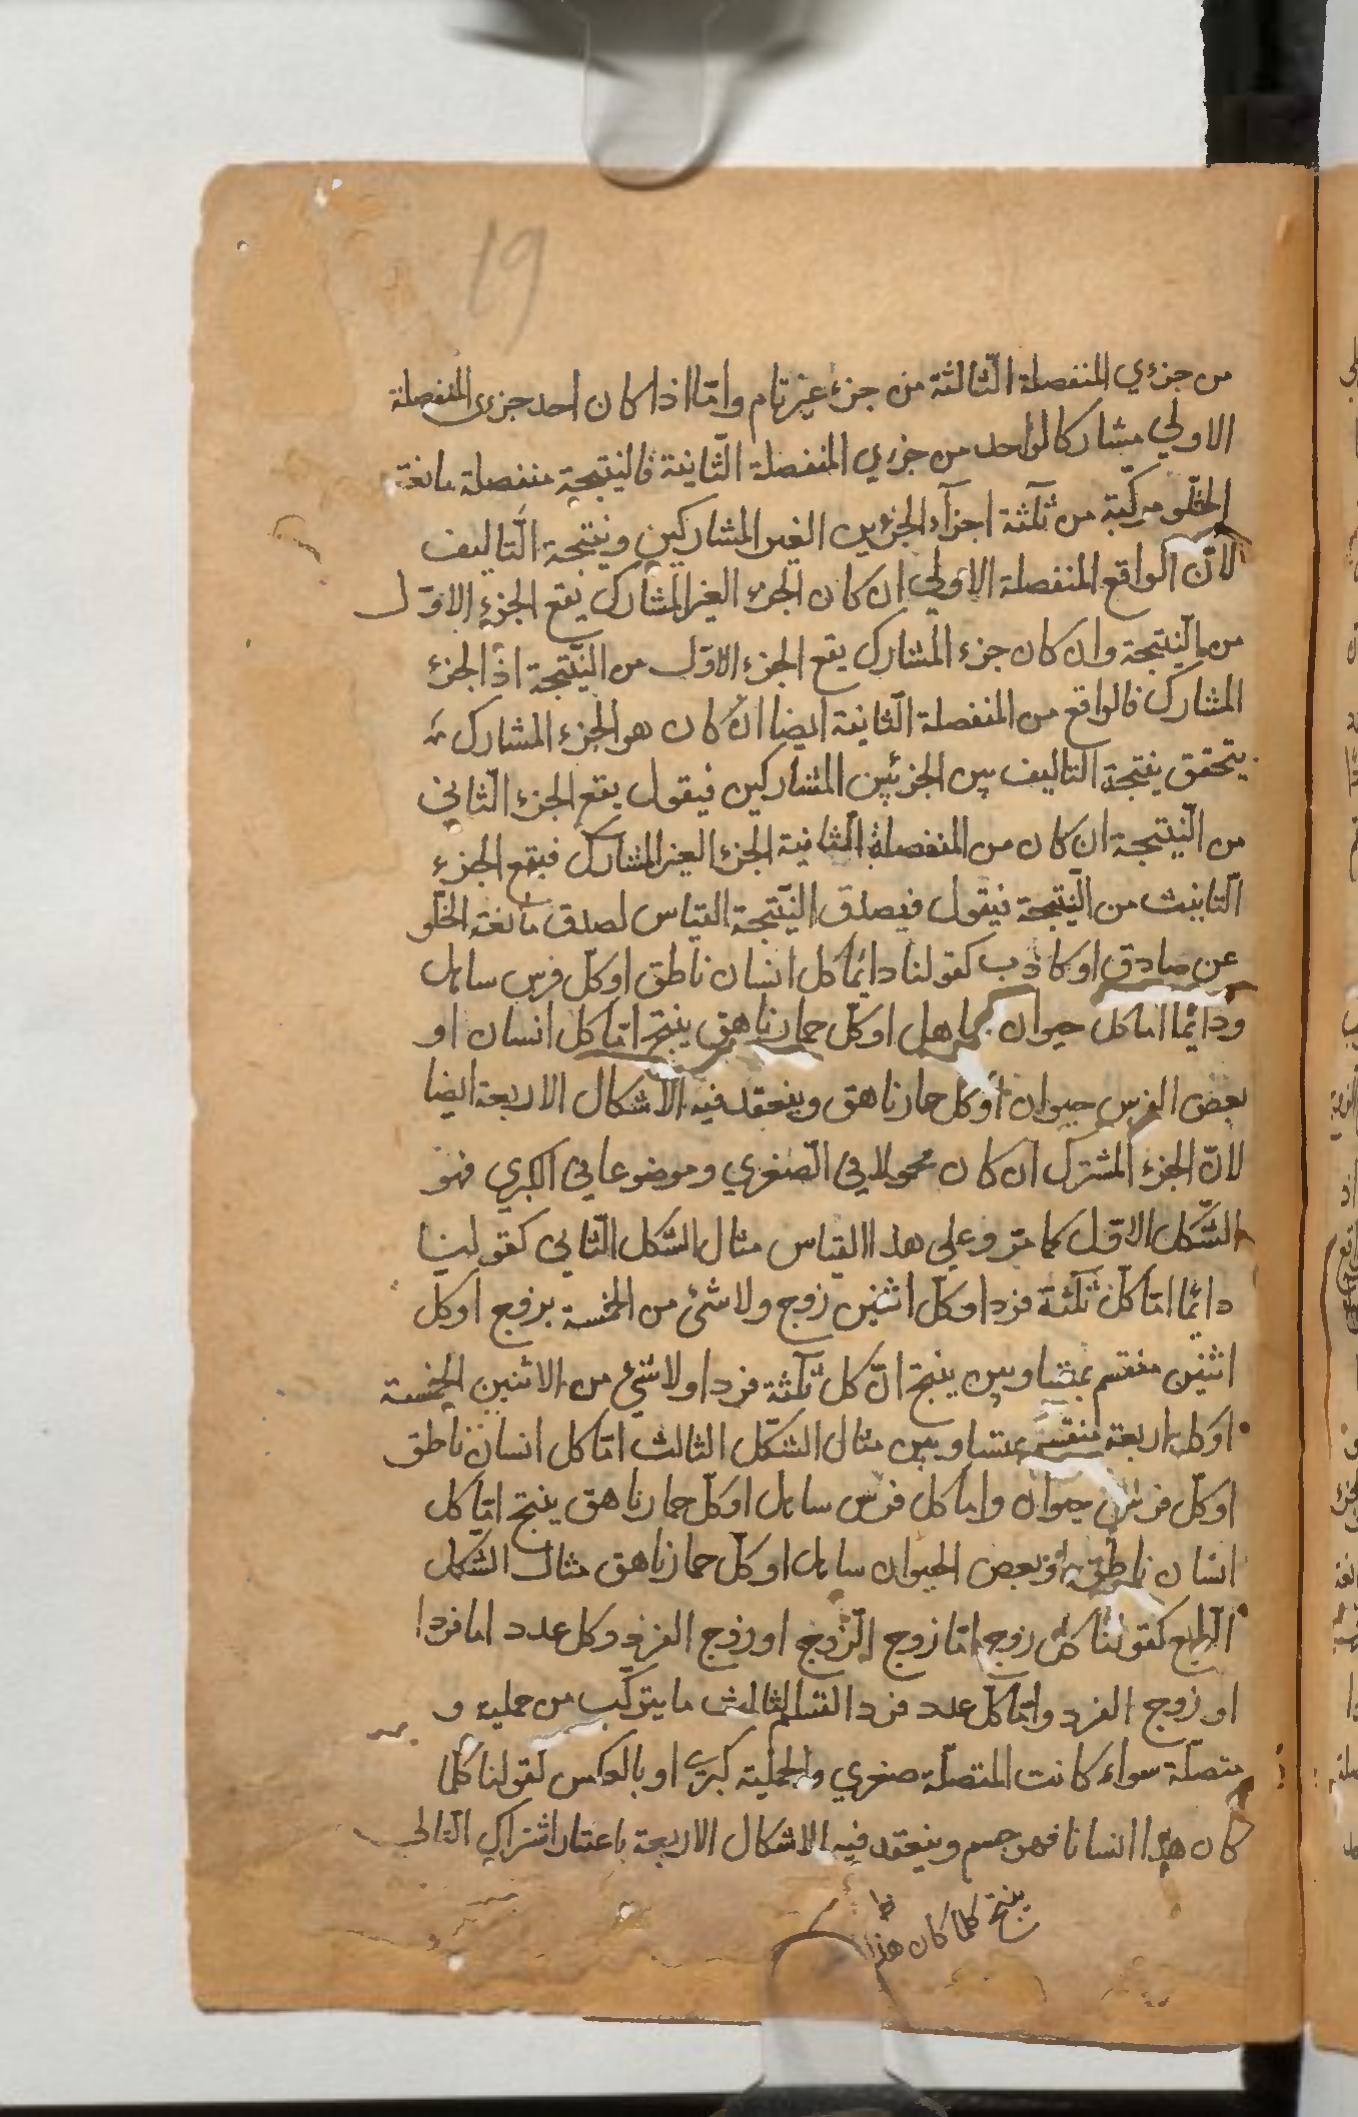 19
من جزءي المنفصلة الثّالثة من جزء غير تام وامّا اذا كان احد جزءى المنفصلة
الاولي مشاركا لواحد من جزءي المنفصلة الثّانية فالنتيجة منفصلة مانعة
الخلّو مركّبة من ثلثة اجزآء الجزءين الغير المشاركين ونتيجة التّاليف
لانّ الواقع المنفصلة الاولي ان كان الجزء الغير المشارك يقع الجزء الاوّل
من النّتيجة وان كان جزء المشارك يقع الجزء الاوّل من النّتيجة اذ الجزء
المشارك فالواقع من المنفصلة الثّانية ايضا ان كان هو الجزء المشارك
يتحقق نتيجة التاليف بين الجزئين المشاركين فيقول يقع الجزء الثّاني
من النّتيجة ان كان من المنفصلة الثّانية الجزء الغير المشارك فيقع الجزء
الثّالث من النّتيجة فيقول فيصدق النّتيجة القياس لصدق مانعة الخلّو
عن صادق او كاذب كقولنا دائمًا كل انسان ناطق او كلّ فرس ساهل
ودائمًا اما كل حيوان ساهل او كلّ حمار ناهق ينتج امّا كل انسان او
بعض الفرس حيوان او كل حمار ناهق وينعقد فيه الاشكال الاربعة ايضا
لانّ الجزء المشترك ان كان محمولا في الصّغري وموضوعا في الكبري فهو
الشّكل الاوّل كما مرّ وعلي هذا القياس مثال الشّكل الثّاني كقولنا
دائمًا امّا كلّ ثلثة فرد او كلّ اثنين زوج ولا شئ من الخمسة بزوج او كلّ
اثنين منقسم بمتساويين ينتج انّ كل ثلثة فرد او لا شئ من الاثنين الخمسة
او كل اربعة منقسم بمتساويين مثال الشّكل الثالث امّا كل انسان ناطق
او كلّ فرس حيوان واما كل فرس ساهل او كل حمار ناهق ينتج امّا كل
انسان ناطق او بعض الحيوان ساهل او كلّ حمار ناهق مثال الشّكل
الرّابع كقولنا كل زوج امّا زوج الزّوج او زوج الفرد وكل عدد اما فردا
او زوج الفرد وامّا كلّ عدد فرد القسم الثالث ما يتركّب من حملية و
متصلّة سواء كانت المتصلّة صغري والحمليّة كبرى او بالعكس كقولنا كلّما
كان هذا انسانا فهو جسم وينعقد فيه الاشكال الاربعة باعتبار اشتراك التالي
ينتج كلما كان هذا